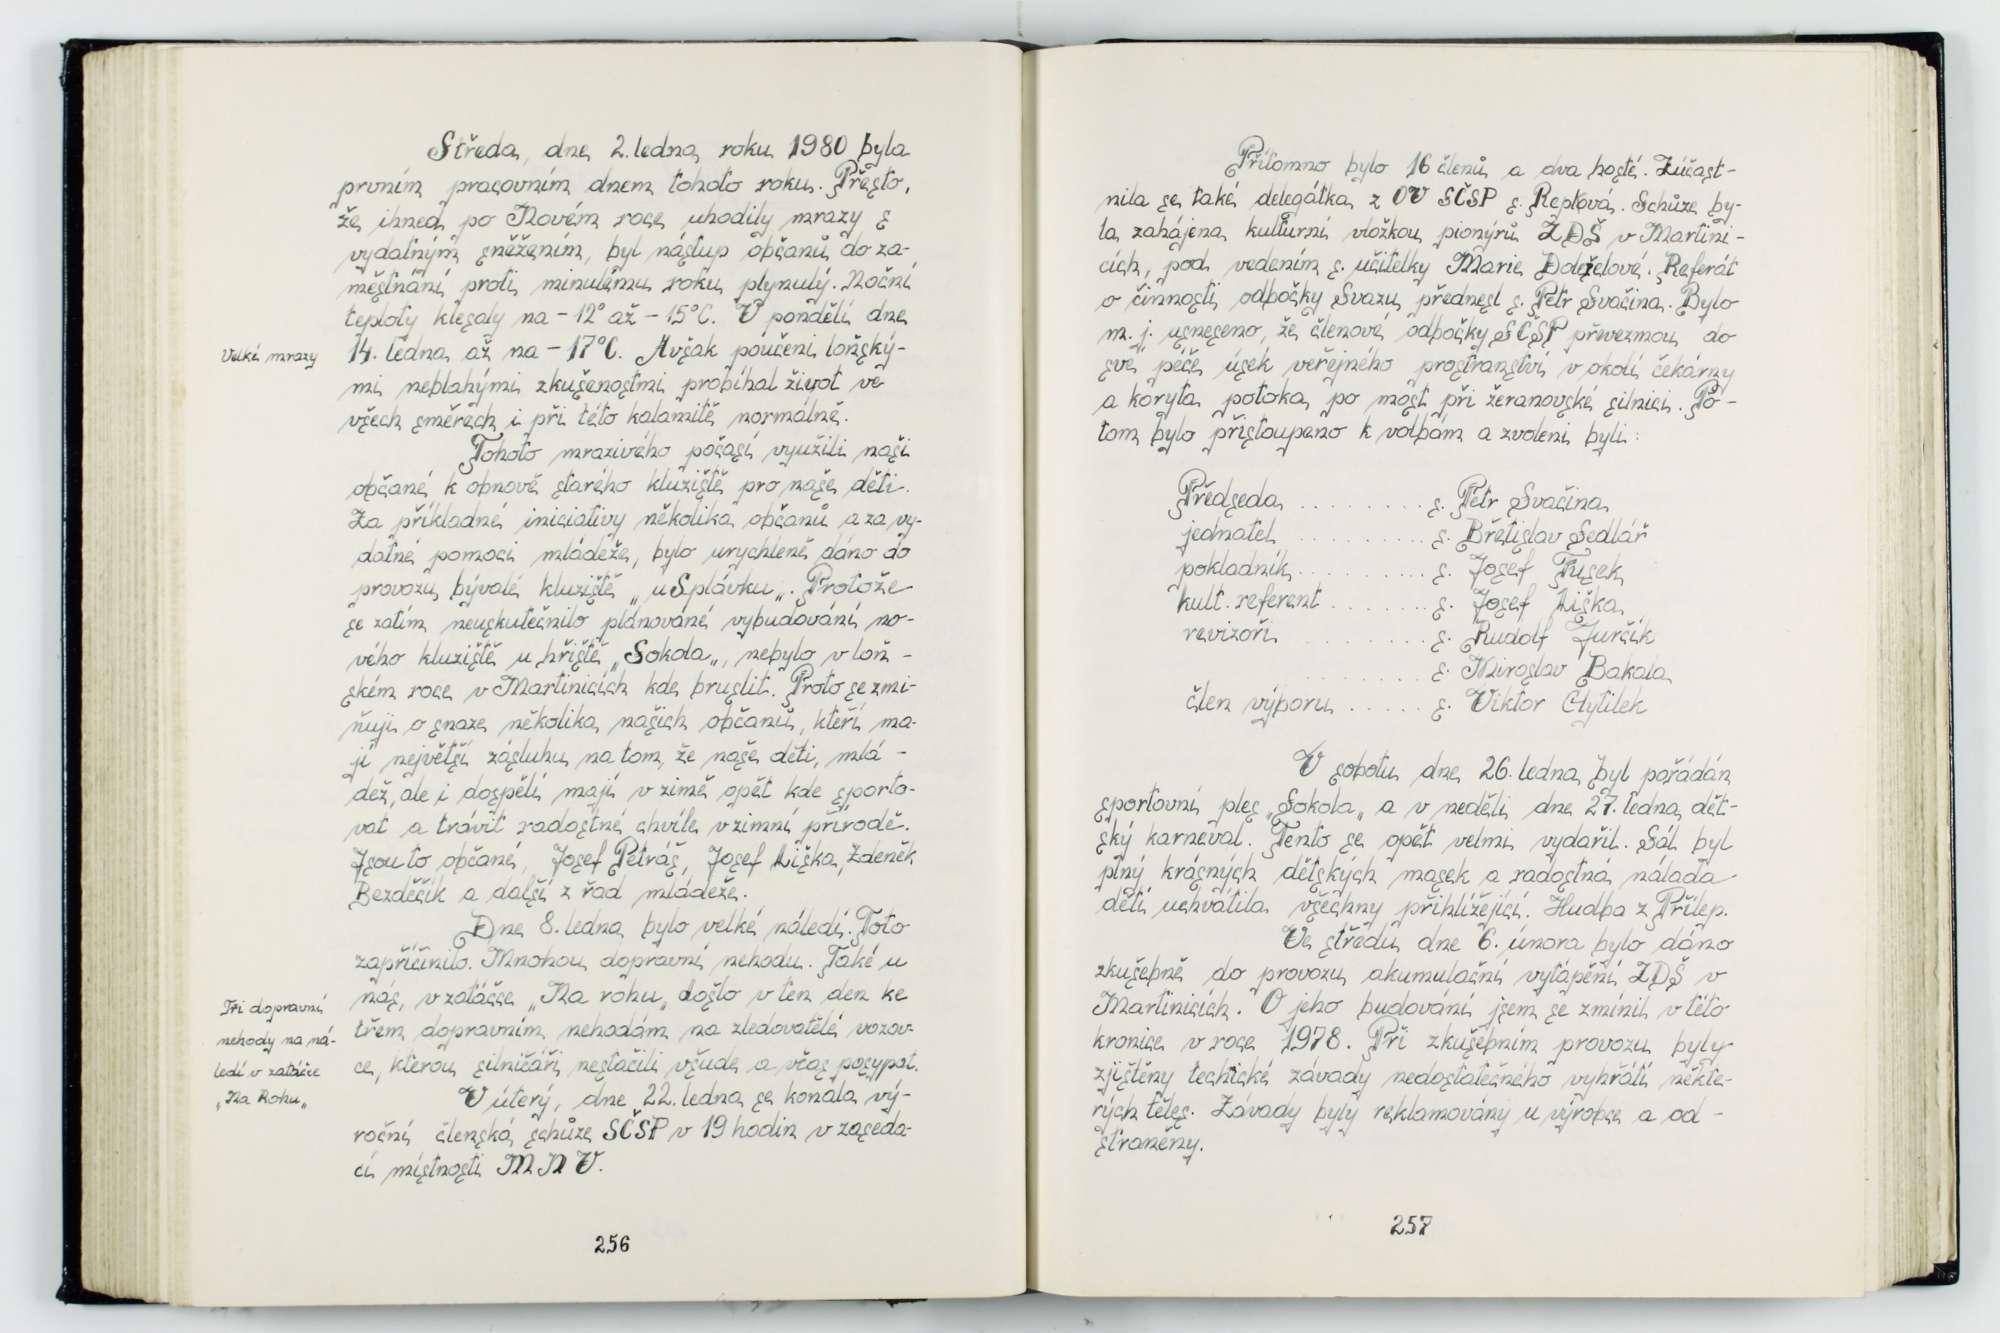 Středa, dne 2. ledna roku 1980 byla
prvním pracovním dnem tohoto roku. Přesto,
že ihned po Novém roce uhodily mrazy s
vydatným sněžením, byl nástup občanů do za-
městnání proti minulému roku plynulý. Noční
teploty klesaly na -12° až -15°C. V pondělí dne
Velké mrazy
14. ledna až na -17°C. Avšak poučeni loňský-
mi neblahými zkušenostmi probíhal život ve
všech směrech i při této kalamitě normálně.
Tohoto mrazivého počasí využili naši
občané k obnově starého kluziště pro naše děti.
Za příkladné iniciativy několika občanů a za vy-
datné pomoci mládeže, bylo urychleně dáno do
provozu bývalé kluziště „u Splávku„. Protože
se zatím neuskutečnilo plánované vybudování no-
vého kluziště u hřiště „Sokola„, nebylo v loň-
ském roce v Martinicích kde bruslit. Proto se zmi-
ňuji o snaze několika našich občanů, kteří ma-
jí největší zásluhu na tom, že naše děti, mlá-
dež, ale i dospělí mají v zimě opět kde sporto-
vat a trávit radostné chvíle v zimní přírodě.
Jsou to občané, Josef Petráš, Josef Liška, Zdeněk
Bezděčík a další z řad mládeže.
Dne 8. ledna bylo velké náledí. Toto
zapříčinilo. Mnohou dopravní nehodu. Také u
nás, v zatáčce „Na rohu„ došlo v ten den ke
třem dopravním nehodám na zledovatělé vozov-
ce, kterou silničáři nestačili všude a včas posypat.
Tři dopravní
nehody na ná-
ledí v zatáčce
„Na Rohu„
V úterý, dne 22. ledna se konala vý-
roční členská schůze SČSP v 19 hodin v zaseda-
cí místnosti MNV.
256
Přítomno bylo 16 členů a dva hosté. Zúčast-
nila se také delegátka z OV SČSP s. Replová. Schůze by-
la zahájena kulturní vložkou pionýrů ZDŠ v Martini-
cích, pod vedením s. učitelky Marie Doleželové. Referát
o činnosti odbočky Svazu přednesl s. Petr Svačina. Bylo
m. j. usneseno, že členové odbočky SČSP převezmou do
své péče úsek veřejného prostranství v okolí čekárny
a koryta potoka po most při žeranovské silnici. Po-
tom bylo přistoupeno k volbám a zvoleni byli:
Předseda ......... s. Petr Svačina
jednatel ......... s. Břetislav Sedlář
pokladník ......... s. Josef Fusek
kult. referent ....... s. Josef Liška
revizoři ........ s. Rudolf Jurčík
........ s. Miroslav Bakala
člen výboru ..... s. Viktor Chytilek
V sobotu dne 26. ledna byl pořádán
sportovní ples „Sokola„ a v neděli dne 27. ledna dět-
ský karneval. Tento se opět velmi vydařil. Sál byl
plný krásných dětských masek a radostná nálada
dětí uchvátila všechny přihlížející. Hudba z Přílep.
Ve středu dne 6. února bylo dáno
zkušebně do provozu akumulační vytápění ZDŠ v
Martinicích. O jeho budování jsem se zmínil v této
kronice v roce 1978. Při zkušebním provozu byly
zjištěny technické závady nedostatečného vyhřátí někte-
rých těles. Závady byly reklamovány u výrobce a od-
straněny.
257